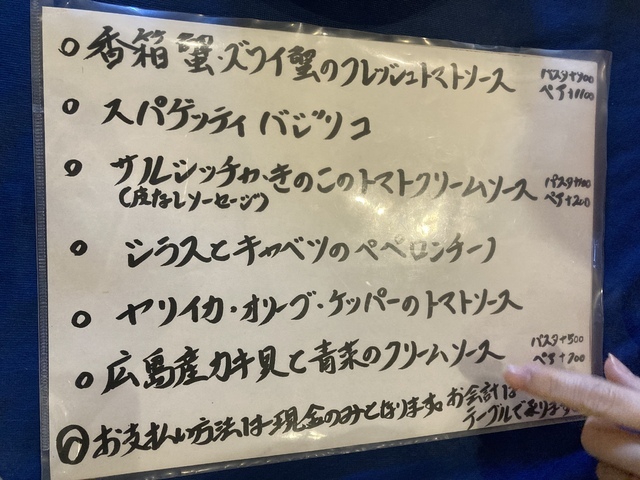 ○ 香箱蟹・ズワイ蟹のフレッシュトマトソース パスタ+900 ペア+1100
○ スパゲッティ バジリコ
○ サルシッチャ・きのこのトマトクリームソース パスタ+100 ペア+200
(皮なしソーセージ)
○ シラスとキャベツのペペロンチーノ
○ ヤリイカ・オリーブ・ケッパーのトマトソース
○ 広島産カキ貝と青菜のクリームソース パスタ+500 ペア+700
お支払い方法は現金のみとなります。お会計は
テーブルで承ります